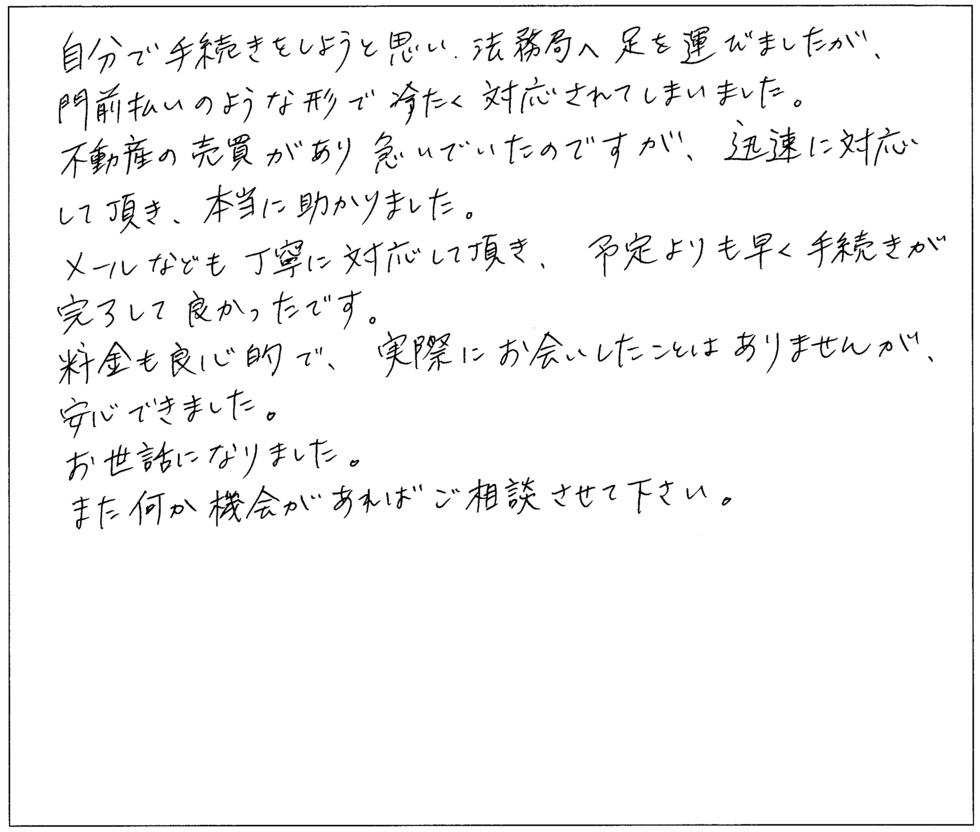 自分で手続きをしようと思い、法務局へ足を運びましたが、
門前払いのような形で冷たく対応されてしまいました。
不動産の売買があり急いでいたのですが、迅速に対応
して頂き、本当に助かりました。
メールなども丁寧に対応して頂き、予定よりも早く手続きが
完了して良かったです。
料金も良心的で、実際にお会いしたことはありませんが、
安心できました。
お世話になりました。
また何か機会があればご相談させて下さい。